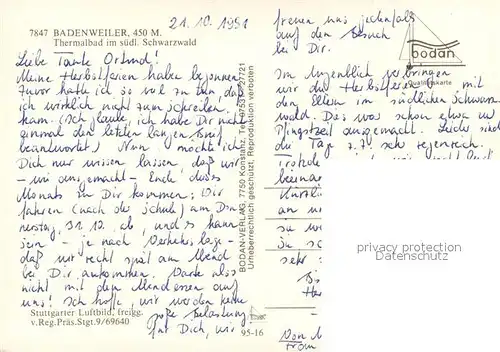 7847 BADENWEILER, 450 M.
Thermalbad im südl. Schwarzwald
21.10.1991
Liebe Tante Ortrud!
Meine Herbstferien haben begonnen.
Zuvor hatte ich so viel zu tun, daß
ich wirklich nicht zum Schreiben
kam. (Ich glaube, ich habe Dir nicht
einmal den letzten langen Brief
beantwortet) Nun möchte ich
Dich nur wissen lassen, daß wir
- wie ausgemacht - Ende dieses
Monats zu Dir kommen; Wir
fahren (nach der Schule) am Don-
nerstag, 31.10. ab, und es kann
sein - je nach Verkehrslage -
daß wir recht spät am Abend
bei Dir ankommen. Warte also
nicht mit dem Abendessen auf
uns! Ich hoffe, wir werden keine
große Belastung
für Dich, wir
Stuttgarter Luftbild, freigg.
v.Reg.Präs.Stgt.9/69640
95-16
BODAN-VERLAG, 7750 Konstanz, Tel. 07531/27721
Urheberrechtlich geschützt, Reproduktion verboten
freuen uns jedenfalls
auf den Besuch
bei Dir.
bodan
Qualitätskarte
Im Augenblick verbringen
wir die Herbstferien mit
den Eltern im südlichen Schwarz-
wald. Das war schon etwa um
Pfingstzeit ausgemacht. Leider sind
die Tage z.T. sehr regenreich.
Trotzde
beiena
Kürzli
an u
zu w
zu sc
sehr
privacy protection
oldthing.de
Von